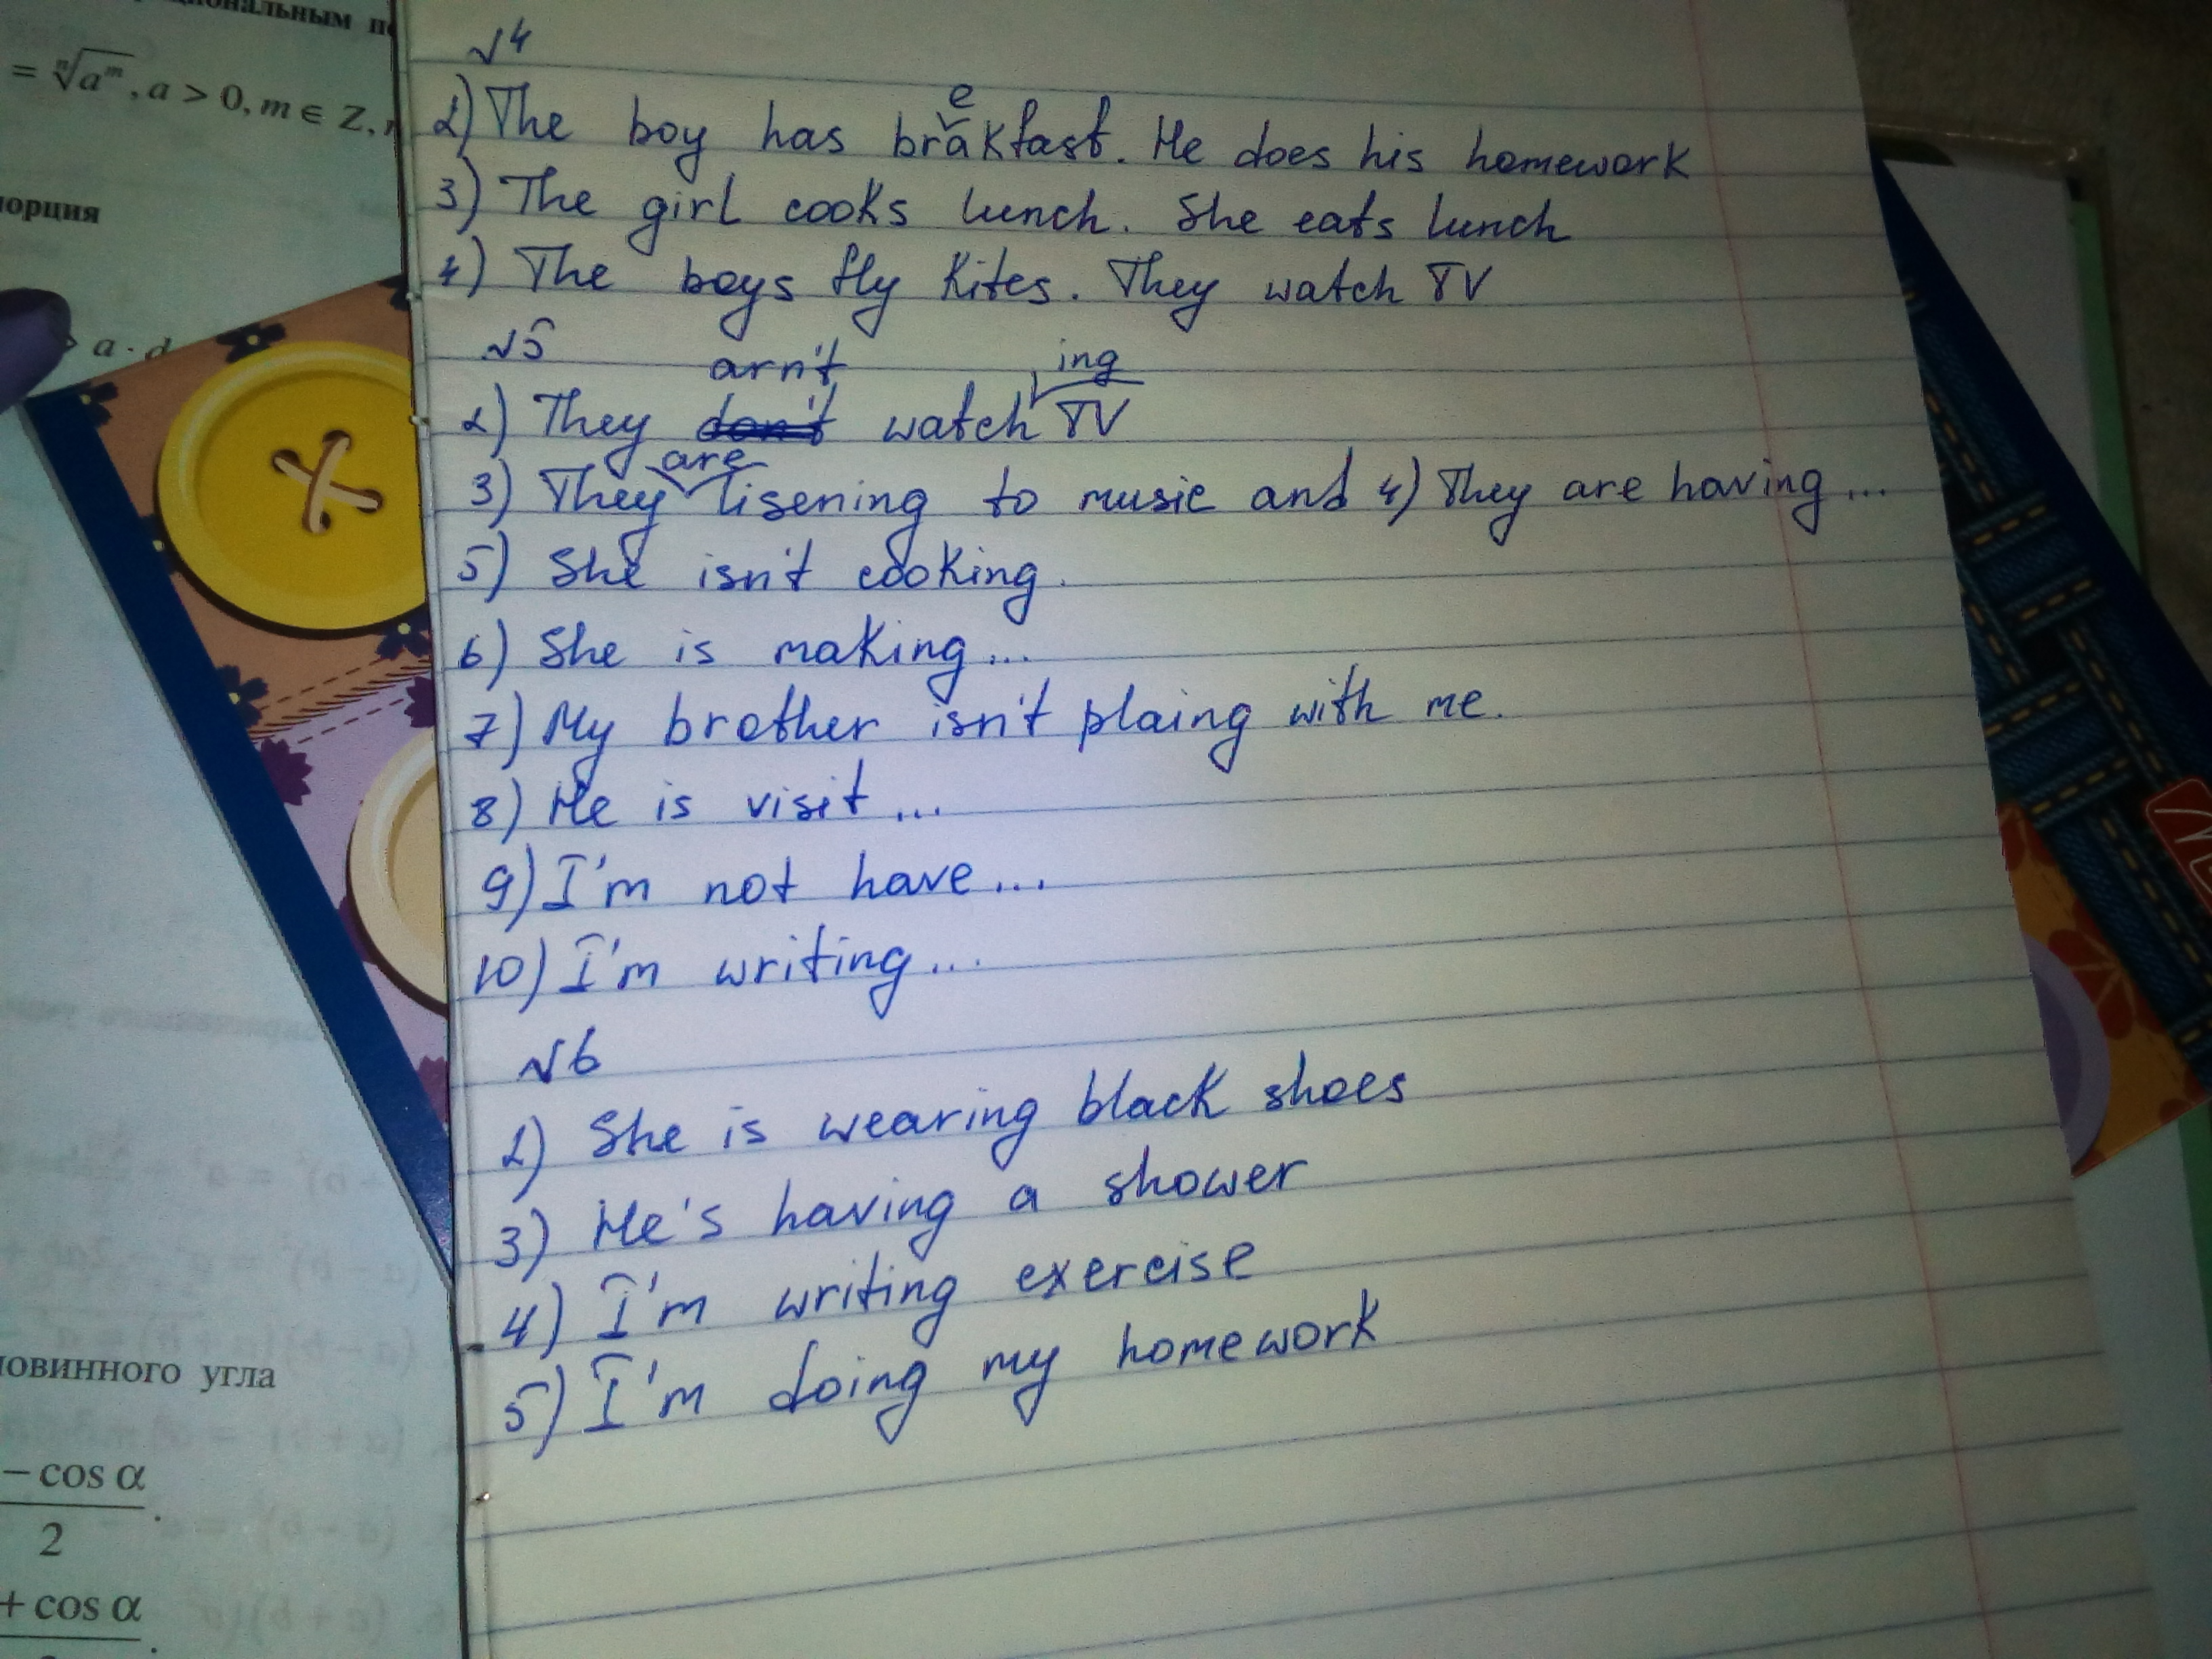 = ⁿ√aᵐ, a > 0, m ∈ Z,
порция
a · d
овинного угла
– cos α
2
+ cos α
№4
2) The boy has breakfast. He does his homework
3) The girl cooks lunch. She eats lunch
4) The boys fly kites. They watch TV
№5
2) They don't arn't watching TV
3) They are lisening to music and 4) They are having...
5) She isn't cooking.
6) She is making...
7) My brother isn't plaing with me.
8) He is visit...
9) I'm not have...
10) I'm writing...
№6
2) She is wearing black shoes
3) He's having a shower
4) I'm writing exercise
5) I'm doing my homework